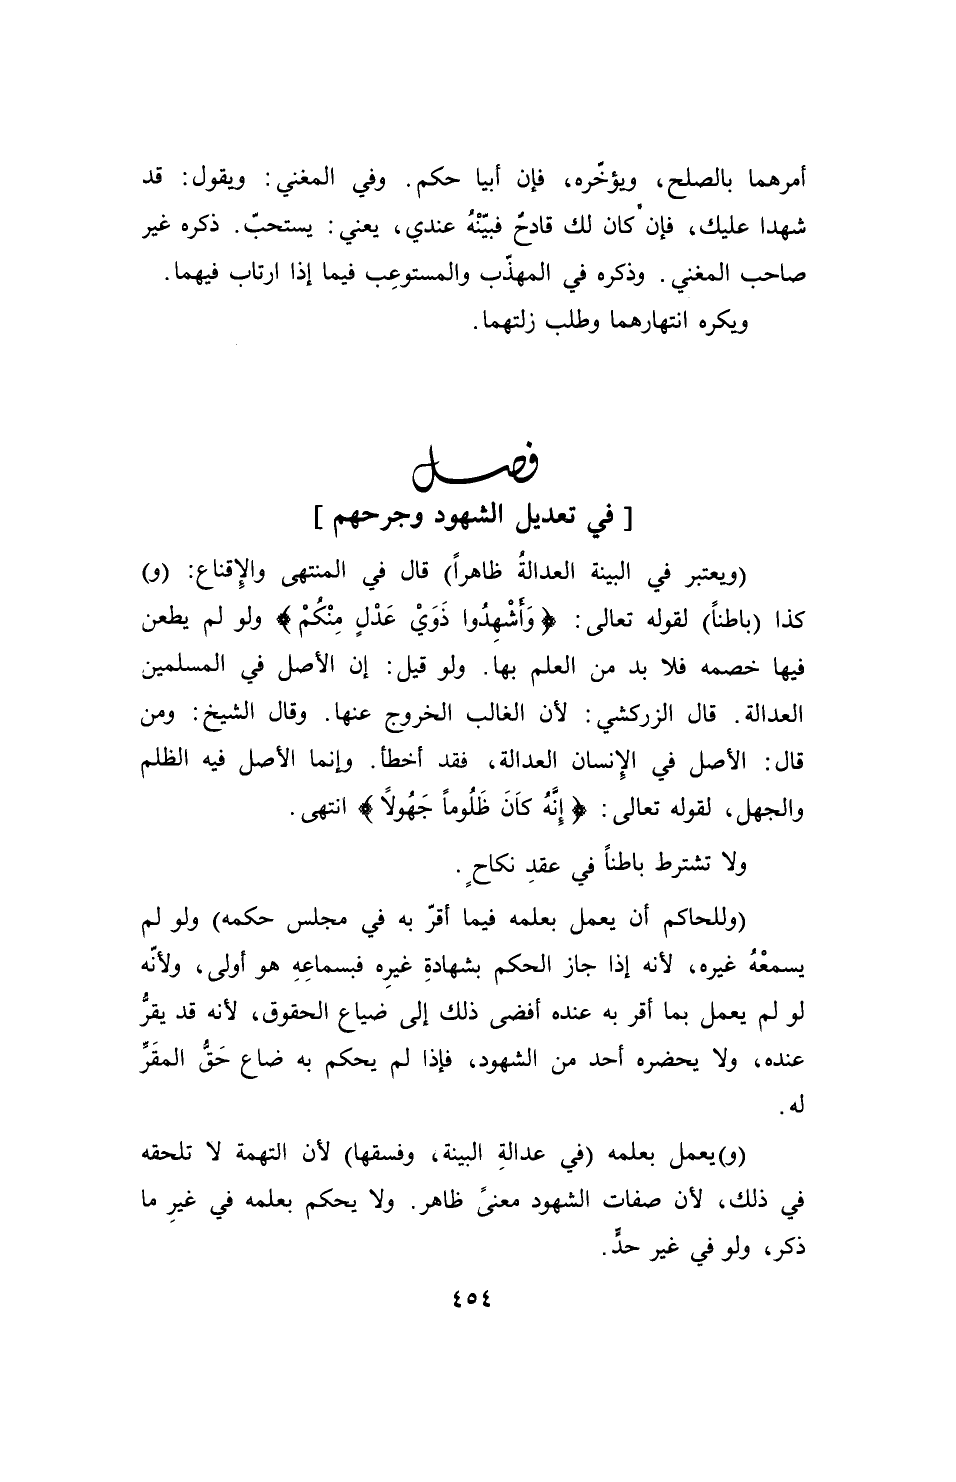 أمرهما بالصلح، ويؤخّره، فإن أبيا حكم. وفي المغني: ويقول: قد
شهدا عليك، فإن كان لك قادحٌ فبيّنْهُ عندي، يعني: يستحبّ. ذكره غير
صاحب المغني. وذكره في المهذّب والمستوعِب فيما إذا ارتاب فيهما.
ويكره انتهارهما وطلب زلتهما.
فصل
[ في تعديل الشهود وجرحهم ]
(ويعتبر في البينة العدالةُ ظاهراً) قال في المنتهى والإقناع: (و)
كذا (باطناً) لقوله تعالى: ﴿وَأَشْهِدُوا ذَوَيْ عَدْلٍ مِنْكُمْ﴾ ولو لم يطعن
فيها خصمه فلا بد من العلم بها. ولو قيل: إن الأصل في المسلمين
العدالة. قال الزركشي: لأن الغالب الخروج عنها. وقال الشيخ: ومن
قال: الأصل في الإنسان العدالة، فقد أخطأ. وإنما الأصل فيه الظلم
والجهل، لقوله تعالى: ﴿إِنَّهُ كَانَ ظَلُوماً جَهُولاً﴾ انتهى.
ولا تشترط باطناً في عقدِ نكاحٍ.
(وللحاكم أن يعمل بعلمه فيما أقرّ به في مجلس حكمه) ولو لم
يسمعْهُ غيره، لأنه إذا جاز الحكم بشهادةِ غيرِه فبسماعِهِ هو أولى، ولأنّه
لو لم يعمل بما أقر به عنده أفضى ذلك إلى ضياع الحقوق، لأنه قد يقرُّ
عنده، ولا يحضره أحد من الشهود، فإذا لم يحكم به ضاع حَقُّ المقَرِّ
له.
(و)يعمل بعلمه (في عدالةِ البينة، وفسقها) لأن التهمة لا تلحقه
في ذلك، لأن صفات الشهود معنىً ظاهر. ولا يحكم بعلمه في غيرِ ما
ذكر، ولو في غير حدٍّ.
٤٥٤